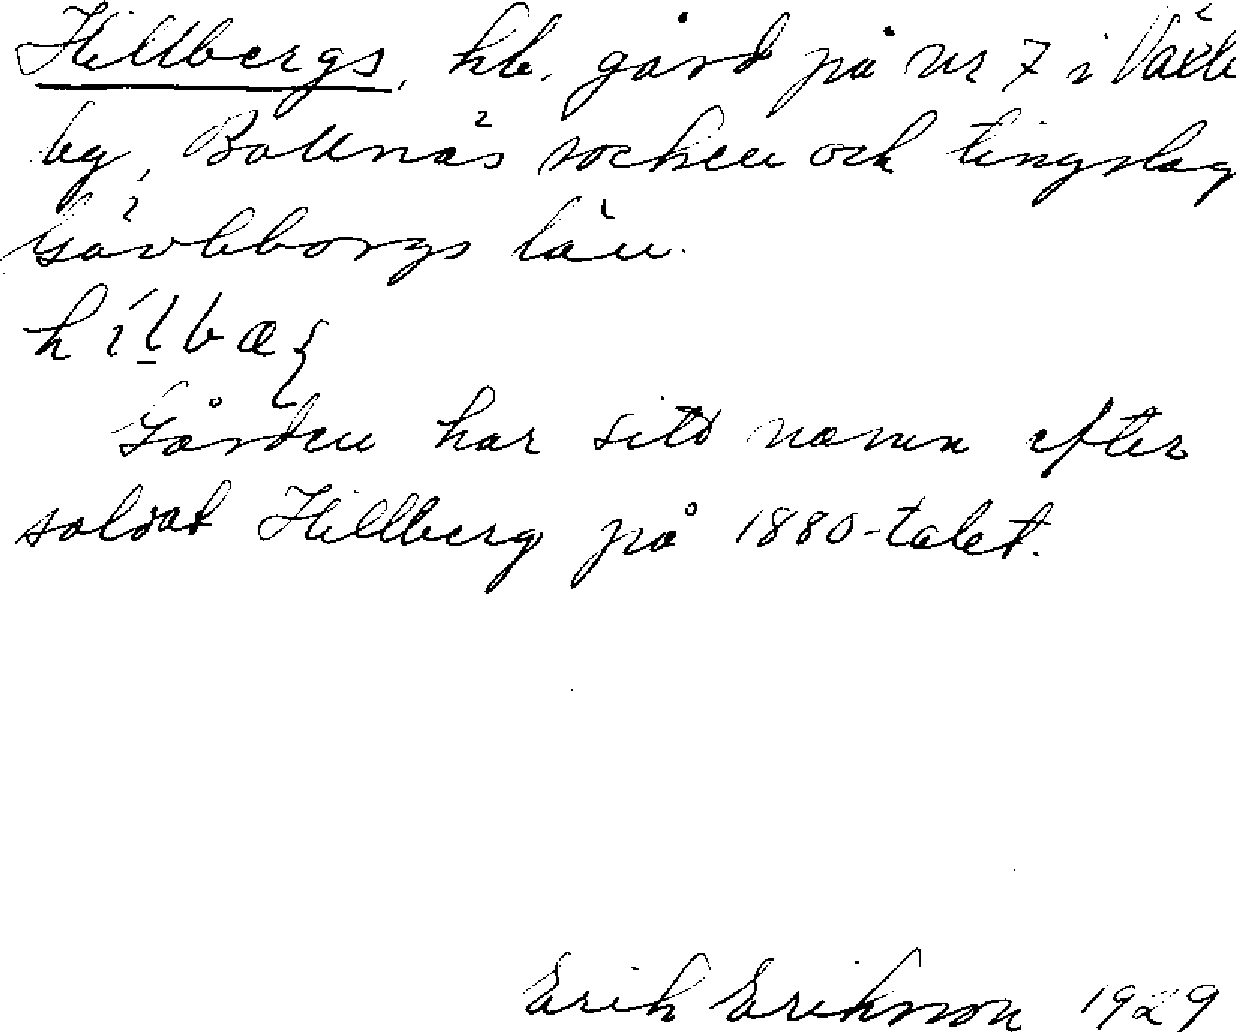 Hillbergs, hb. gård på nr 7 i Växbo
by, Bollnäs socken och tingslag
Gävleborgs län.
hílbæ
Gården har sitt namn efter
soldat Hillberg på 1880-talet.
Erik Erikson 1929